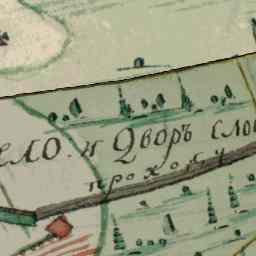 ело. и Дворъ сло
проходу